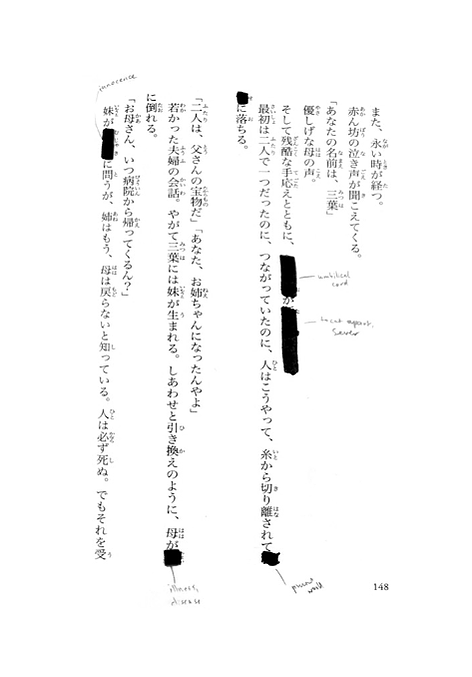 また、永い時が経つ。
赤ん坊の泣き声が聞こえてくる。
「あなたの名前は、三葉」
優しげな母の声。
そして残酷な手応えとともに、が
最初は二人で一つだったのに、つながっていたのに、人はこうやって、糸から切り離されて
に落ちる。
「二人は、父さんの宝物だ」「あなた、お姉ちゃんになったんやよ」
若かった夫婦の会話。やがて三葉には妹が生まれる。しあわせと引き換えのように、母が
に倒れる。
「お母さん、いつ病院から帰ってくるん?」
妹がに問うが、姉はもう、母は戻らないと知っている。人は必ず死ぬ。でもそれを受
umbilical
cord
sever
world
illness,
disease
innocence
148